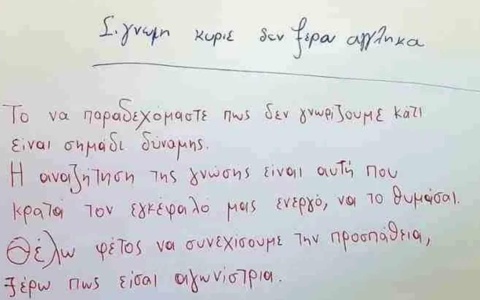 Σ. γνωμη κυριε δεν ξερω αγγληκα
Το να παραδεχόμαστε πως δεν γνωρίζουμε κάτι
είναι σημάδι δύναμης.
Η αναζήτηση της γνώσης είναι αυτή που
κρατά τον εγκέφαλό μας ενεργό, να το θυμάσαι.
Θέλω φέτος να συνεχίσουμε την προσπάθεια,
ξέρω πως είσαι αγωνίστρια.